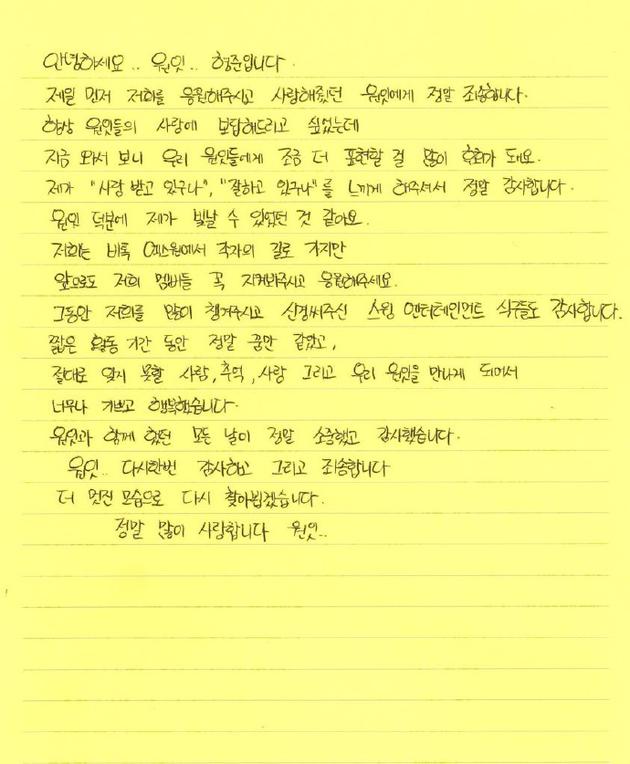 안녕하세요.. 원잇.. 형준입니다.
제일 먼저 저희를 응원해주시고 사랑해줬던 원잇에게 정말 죄송합니다.
항상 원잇들의 사랑에 보답해드리고 싶었는데
지금 와서 보니 우리 원잇들에게 조금 더 표현할 걸 많이 후회가 돼요.
제가 "사랑 받고 있구나", "잘하고 있구나"를 느끼게 해주셔서 정말 감사합니다.
원잇 덕분에 제가 빛날 수 있었던 것 같아요.
저희는 비록 엑스원에서 각자의 길로 가지만
앞으로도 저희 멤버들 꼭 지켜봐주시고 응원해주세요.
그동안 저희를 많이 챙겨주시고 신경써주신 스윙 엔터테인먼트 식구들도 감사합니다.
짧은 활동 기간 동안 정말 꿈만 같았고,
절대로 잊지 못할 사람, 추억, 사랑 그리고 우리 원잇을 만나게 되어서
너무나 기쁘고 행복했습니다.
원잇과 함께 했던 모든 날이 정말 소중했고 감사했습니다.
원잇.. 다시한번 감사하고 그리고 죄송합니다
더 멋진 모습으로 다시 찾아뵙겠습니다.
정말 많이 사랑합니다 원잇..